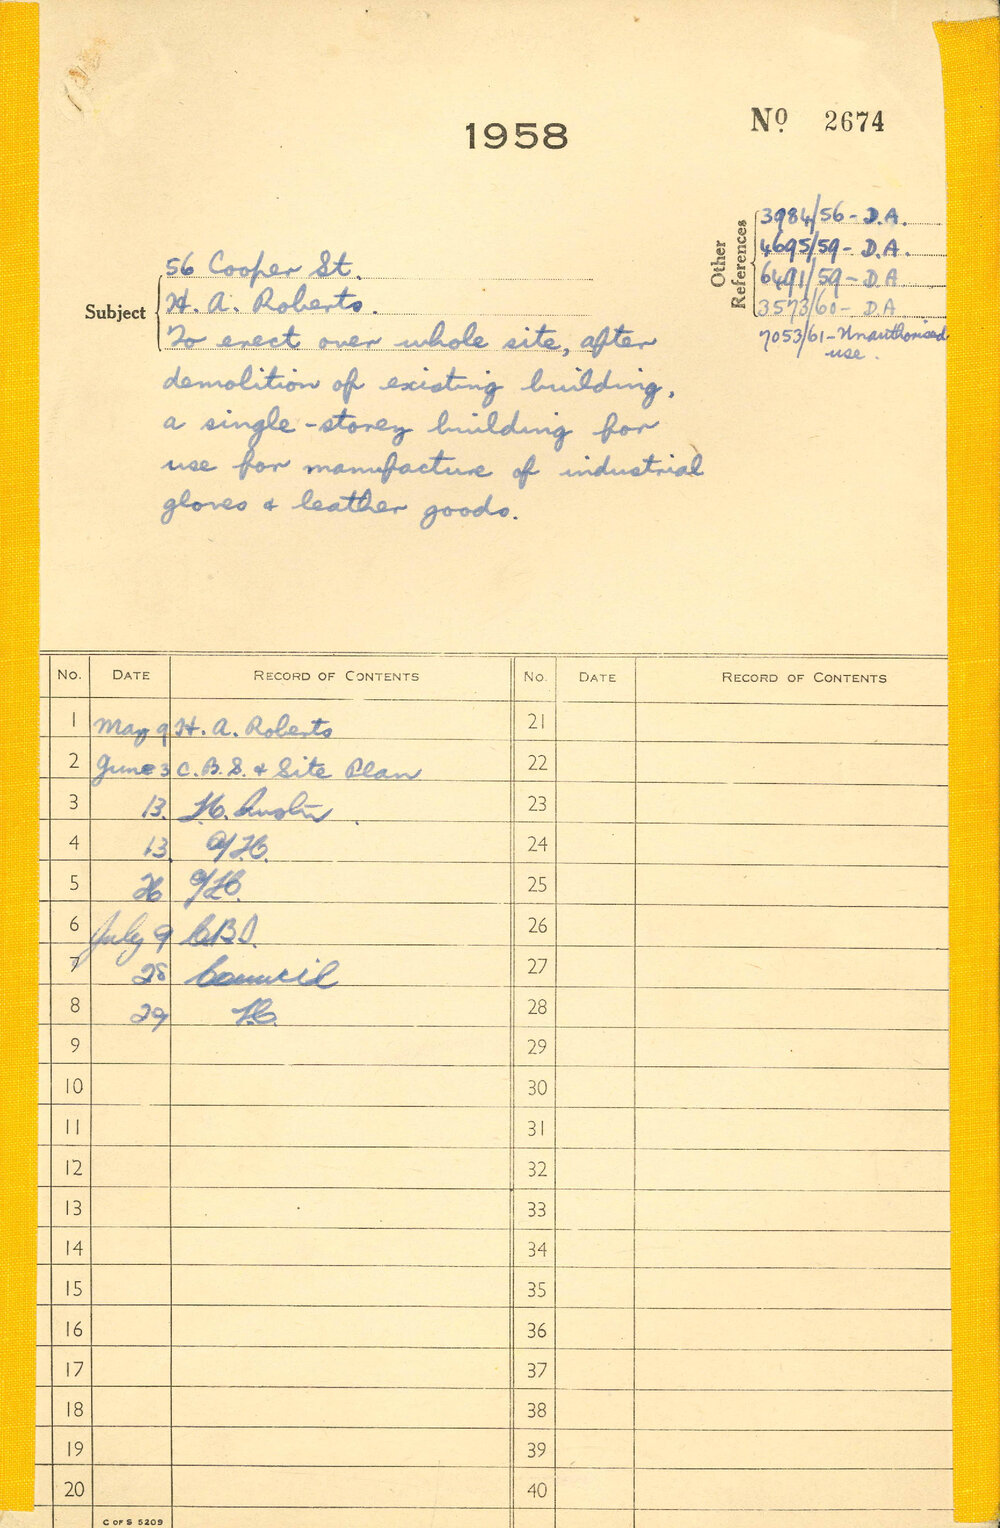 1958
No. 2674
Other References
3984/56 - D.A.
4695/59 - D.A.
6491/59 - D.A
3573/60 - D A
7053/61 - Unauthorised
use.
Subject
56 Cooper St.
H. A. Roberts.
To erect over whole site, after
demolition of existing building,
a single-storey building for
use for manufacture of industrial
gloves & leather goods.
No. DATE RECORD OF CONTENTS No. DATE RECORD OF CONTENTS
1 May 9 H. A. Roberts 21
2 June 3 C.B.S. & Site Plan 22
3 13. 23
4 13. 24
5 26 25
6 July 9 CBS. 26
7 28 Council 27
8 29 28
9 29
10 30
11 31
12 32
13 33
14 34
15 35
16 36
17 37
18 38
19 39
20 40
C OF S 5209